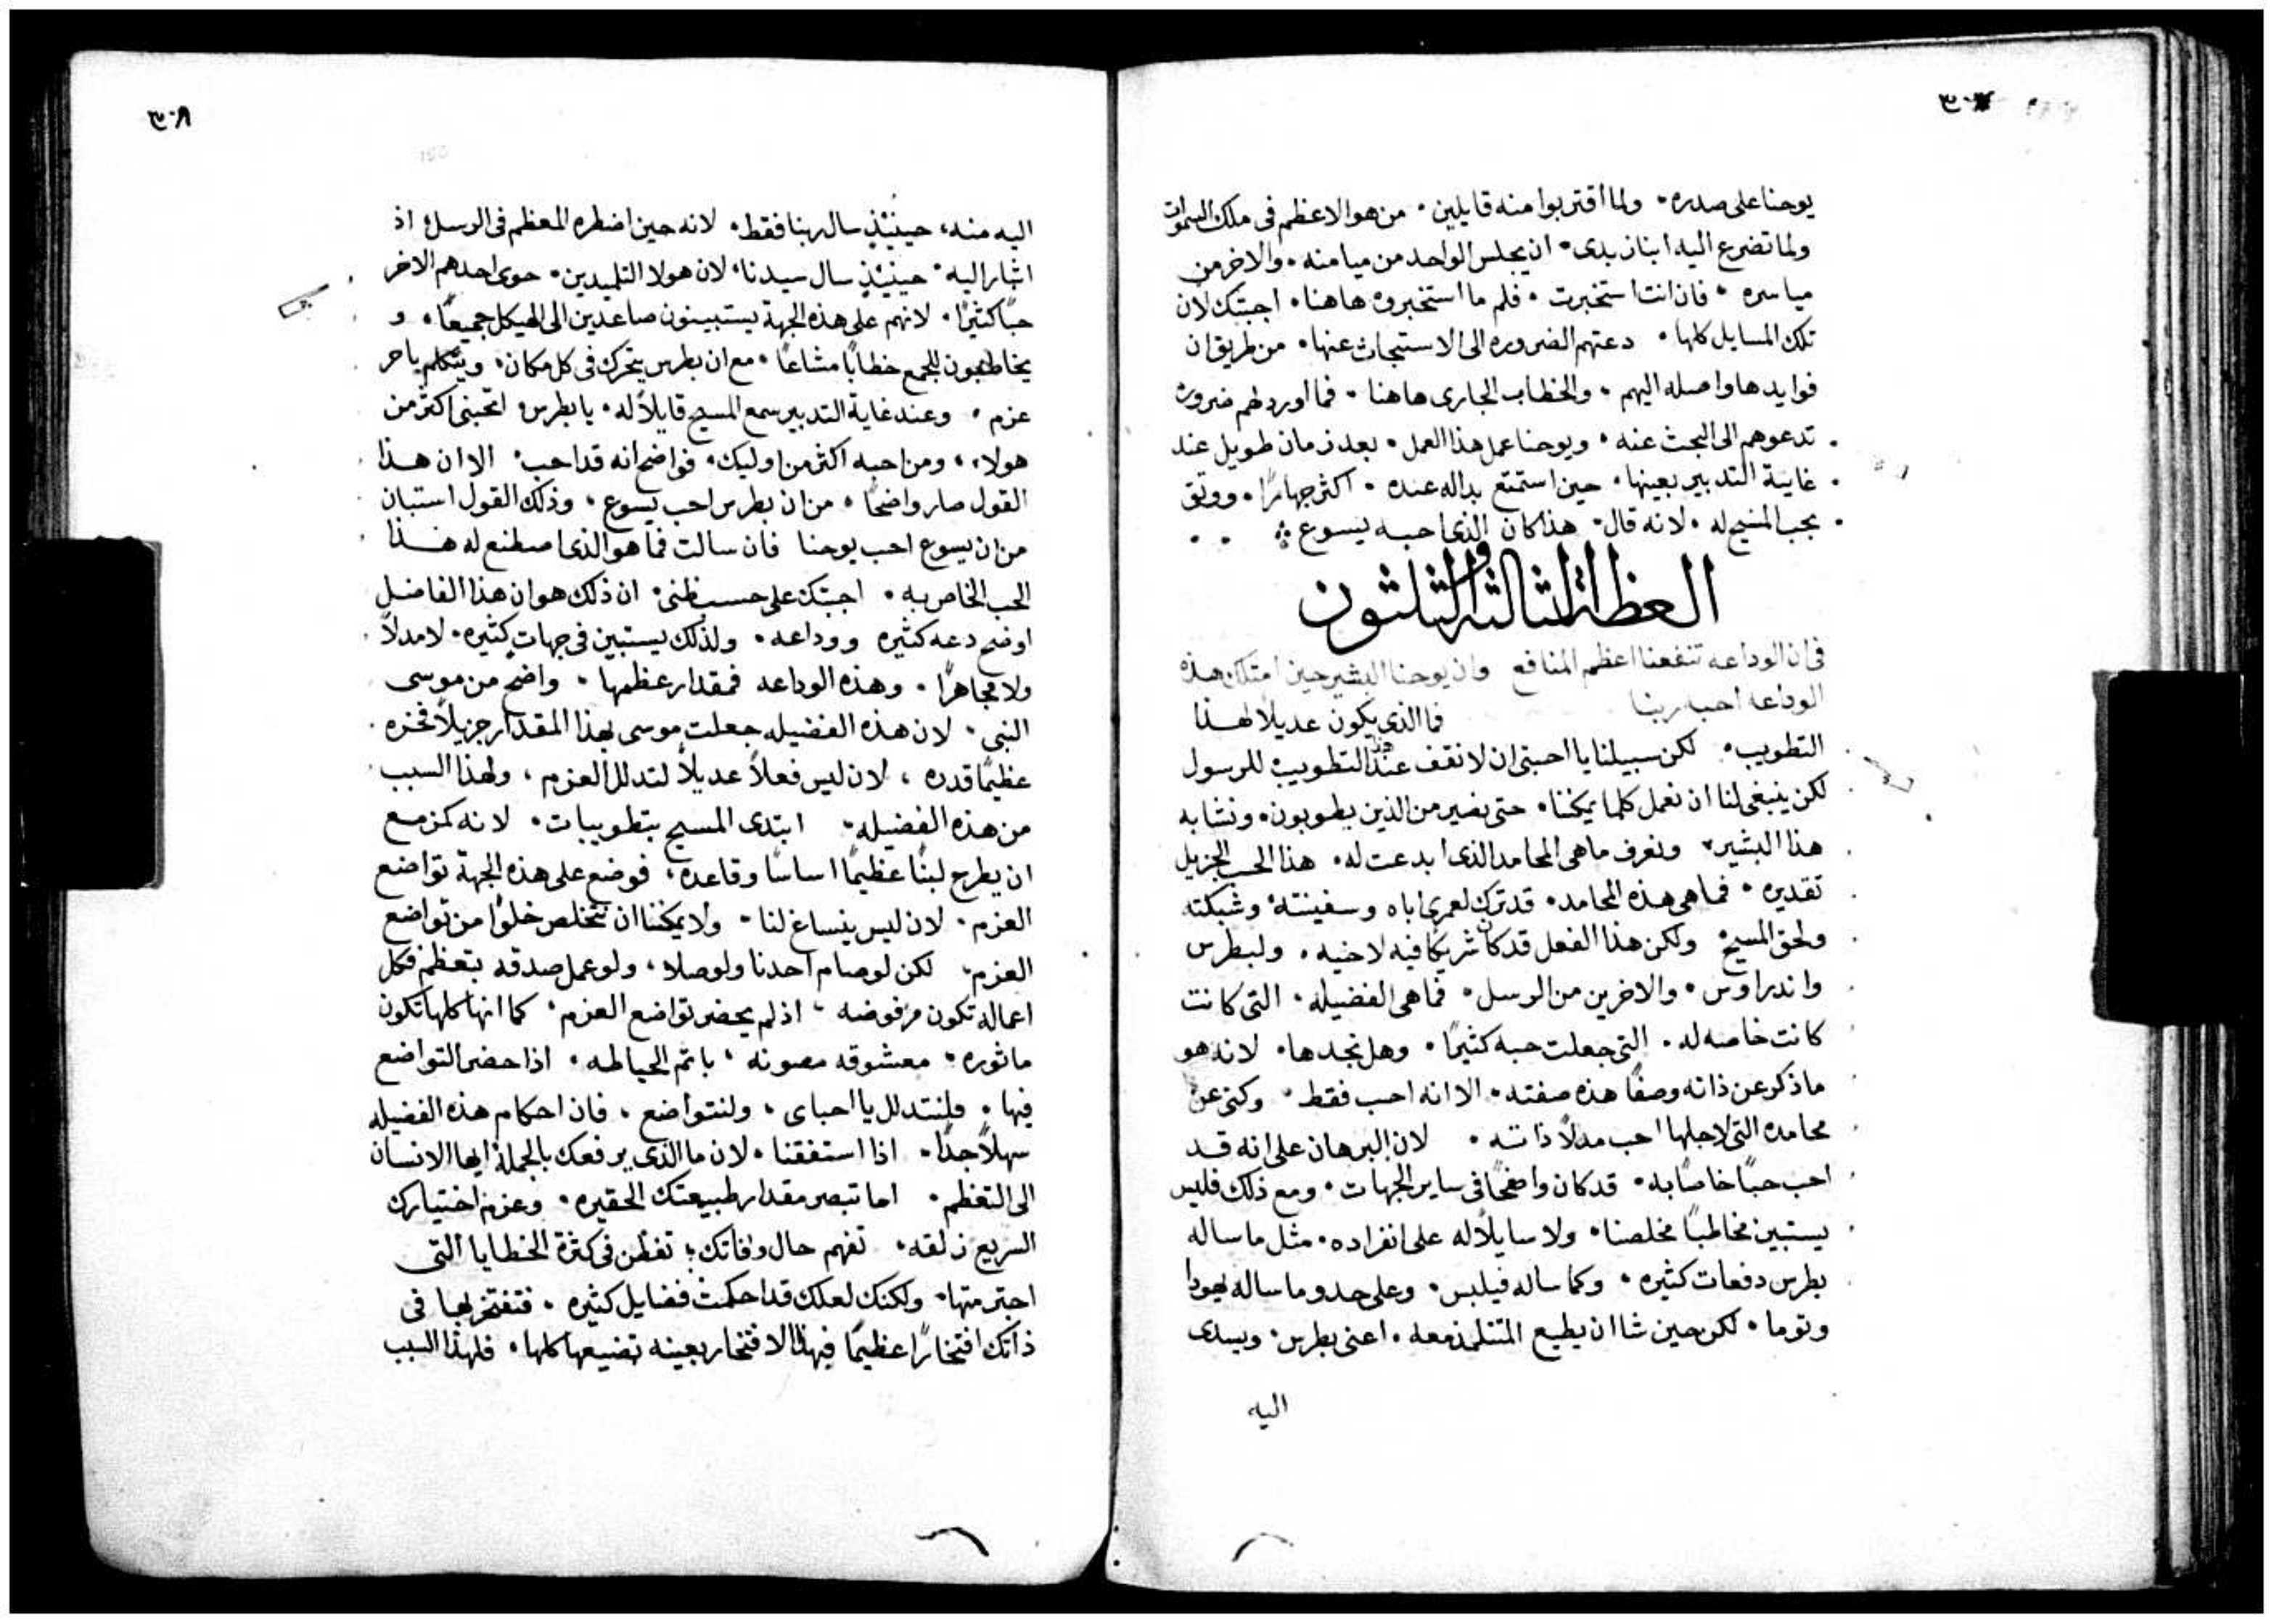 يوحنا على صدره. ولما اقتربوا منه قايلين. من هو الاعظم فى ملك السموات
ولما تضرع اليه ابنا زبدى. ان يجلس الواحد من ميامنه. والاخر من
مياسره. فان انت استخبرت. فلم ما استخبروه هاهنا. اجبتك لان
تلك المسايل كلها. دعتهم الضروره الى الاستبحاث عنها. من طريق ان
فوايدها واصله اليهم. والخطاب الجارى هاهنا. فما اورد لهم ضروره
تدعوهم الى البحث عنه. ويوحنا عمل هذا العمل. بعد زمان طويل عند
غاية التدبير بعينها. حين استمتع بداله عنده. اكثر جهارًا. ووثق
بحب المسيح له. لانه قال. هذا كان الذى احبه يسوع
العظة الثالثة والثلثون
فى ان الوداعه تنفعنا اعظم المنافع وان يوحنا البشير حين امتلك هذه
الوداعه احبه ربنا فما الذى يكون عديلاً لهذا
التطويب. لكن سبيلنا يا احبتى ان لا نقف عند هذا التطويب للرسول
لكن ينبغى لنا ان نعمل كلما يمكننا. حتى نصير من الذين يطوبون. ونشابه
هذا البشير. ونعرف ما هى المحامد الذى ابدعت له. هذا الحب الجزيل
تقديره. فما هى هذه المحامد. قد ترك لعمرى اباه وسفينته وشبكته
ولحق المسيح ولكن هذا الفعل قد كان شريكًا فيه لاخيه. ولبطرس
واندراوس. والاخرين من الرسل. فما هى الفضيله. التى كانت
كانت خاصه له. التى جعلت حبه كثيرًا. وهل نجدها. لانه هو
ما ذكر عن ذاته وصفًا هذه صفته. الا انه احب فقط. وكنى عن
محامده التى لاجلها احب مدلاً ذاته. لان البرهان على انه قد
احب حبًا خاصًا به. قد كان واضحًا فى ساير الجهات. ومع ذلك فليس
يستبين مخاطبًا مخلصنا. ولا سايلاً له على انفراده. مثل ما ساله
بطرس دفعات كثيره. وكما ساله فيلبس. وعلى حدو ما ساله يهودا
وتوما. لكن حين شا ان يطيع المتتلمذ معه. اعنى بطرس. ويسدى
اليه
٣٠٨
اليه منه، حينيذٍ سال ربنا فقط. لانه حين اضطره المعظم فى الرسل اذ
اشار اليه. حينيذٍ سال سيدنا. لان هولا التلميذين. حوى احدهم الاخر
حبًا كثيرًا. لانهم على هذه الجهة يستبينون صاعدين الى الهيكل جميعًا. و
يخاطبون للجمع خطابًا مشاعًا. مع ان بطرس يتحرك فى كل مكان. ويتكلم باحر
عزم. وعند غاية التدبير سمع المسيح قايلاً له. يا بطرس اتحبنى اكثر من
هولاء، ومن احبه اكثر من اوليك. فواضح انه قد احب. الا ان هذا
القول صار واضحًا. من ان بطرس احب يسوع. وذلك القول استبان
من ان يسوع احب يوحنا فان سالت فما هو الذى اصطنع له هذا
الحب الخاص به. اجبتك على حسب ظنى. ان ذلك هو ان هذا الفاضل
اوضح دعه كثيره ووداعه. ولذلك يستبين فى جهات كثيره. لا مدلاً
ولا مجاهرًا. وهذه الوداعه فمقدار عظمها. واضح من موسى
النبى. لان هذه الفضيله جعلت موسى بهذا المقدار جزيلاً فخره
عظيمًا قدره، لان ليس فعلاً عديلاً لتدلل العزم، ولهذا السبب
من هذه الفضيله. ابتدى المسيح بتطويبات. لانه كمزمع
ان يطرح لبنًا عظيمًا اساسًا وقاعده، فوضع على هذه الجهة تواضع
العزم. لان ليس ينساغ لنا. ولا يمكننا ان نتخلص خلوًا من تواضع
العزم. لكن لو صام احدنا ولو صلا، ولو عمل صدقه بتعظم فكل
اعماله تكون مرفوضه، اذ لم يحضر تواضع العزم. كما انها كلها تكون
ماثوره. معشوقه مصونه، باتم الحياطه. اذا حضر التواضع
فيها. فلنتدلل يا احباى، ولنتواضع، فان احكام هذه الفضيله
سهلاً جدًا. اذا استفقنا. لان ما الذى يرفعك بالجملة ايها الانسان
الى التعظم. اما تبصر مقدار طبيعتك الحقيره. وعزم اختيارك
السريع زلقه. تفهم حال وفاتك، تفطن فى كثرة الخطايا التى
اجترمتها. ولكنك لعلك قد احكمت فضايل كثيره. فتفتخر بها فى
ذاتك افتخارًا عظيمًا فبهذا الافتخار بعينه تضيعها كلها. فلهذا السبب